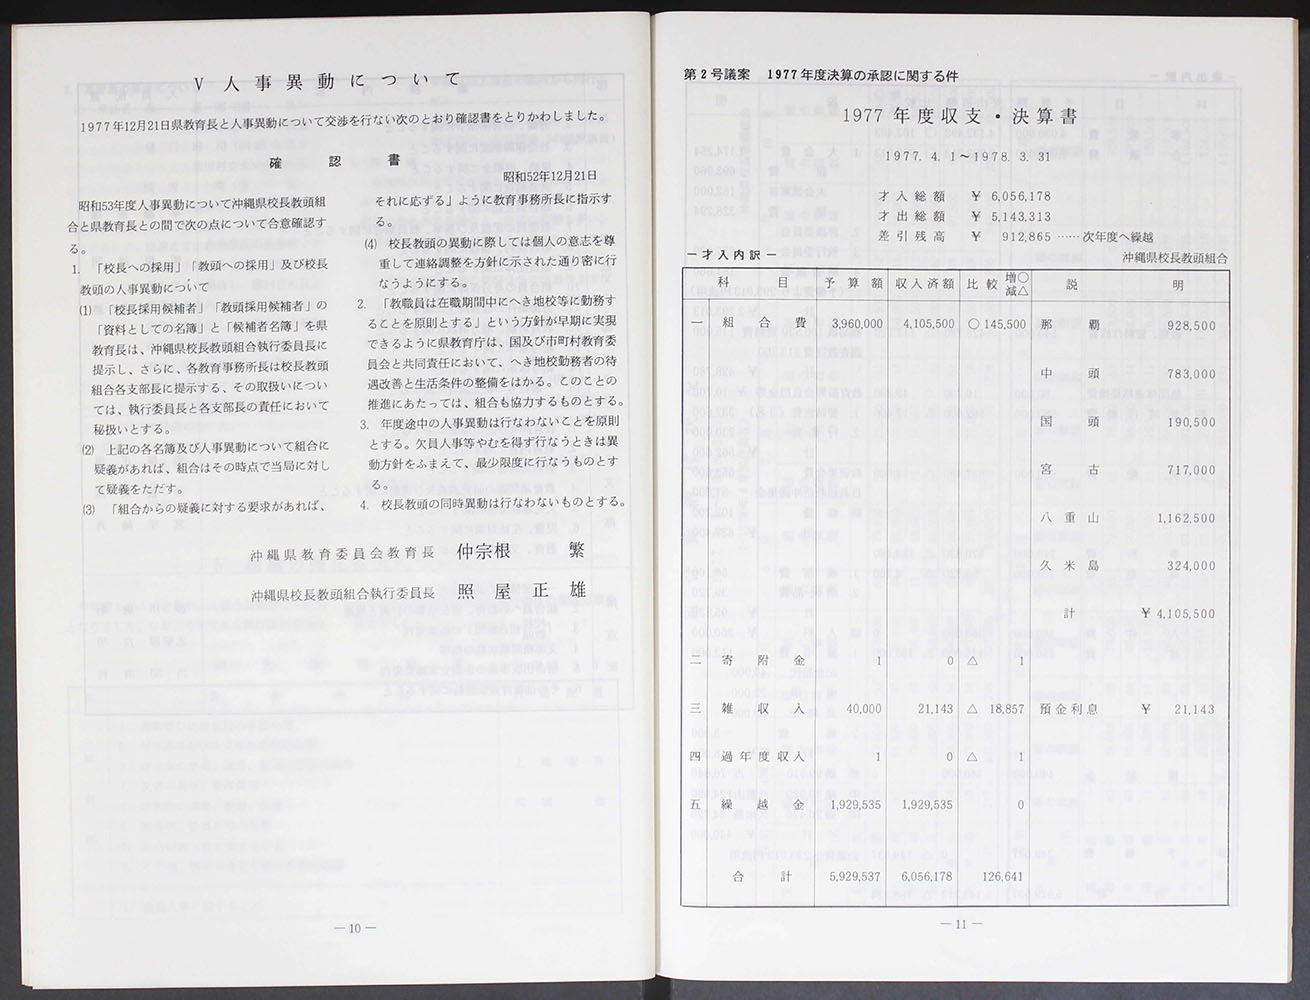 V 人事異動について
1977年12月21日県教育長と人事異動について交渉を行ない次のとおり確認書をとりかわしました。
確認書
昭和52年12月21日
昭和53年度人事異動について沖縄県校長教頭組
合と県教育長との間で次の点について合意確認す
る。
1. 「校長への採用」「教頭への採用」及び校長
教頭の人事異動について
⑴ 「校長採用候補者」「教頭採用候補者」の
「資料としての名簿」と「候補者名簿」を県
教育長は、沖縄県校長教頭組合執行委員長に
提示し、さらに、各教育事務所長は校長教頭
組合各支部長に提示する、その取扱いについ
ては、執行委員長と各支部長の責任において
秘扱いとする。
⑵ 上記の各名簿及び人事異動について組合に
疑義があれば、組合はその時点で当局に対し
て疑義をただす。
⑶ 「組合からの疑義に対する要求があれば、
それに応ずる」ように教育事務所長に指示す
る。
⑷ 校長教頭の異動に際しては個人の意志を尊
重して連絡調整を方針に示された通り密に行
なうようにする。
2. 「教職員は在職期間中にへき地校等に勤務す
ることを原則とする」という方針が早期に実現
できるように県教育庁は、国及び市町村教育委
員会と共同責任において、へき地校勤務者の待
遇改善と生活条件の整備をはかる。このことの
推進にあたっては、組合も協力するものとする。
3. 年度途中の人事異動は行なわないことを原則
とする。欠員人事等やむを得ず行なうときは異
動方針をふまえて、最少限度に行なうものとす
る。
4. 校長教頭の同時異動は行なわないものとする。
沖縄県教育委員会教育長 仲宗根 繁
沖縄県校長教頭組合執行委員長 照屋正雄
— 10 —
第2号議案 1977年度決算の承認に関する件
1977年度収支・決算書
1977. 4. 1～1978. 3. 31
才入総額 ¥ 6,056,178
才出総額 ¥ 5,143,313
差引残高 ¥ 912,865 ……次年度へ繰越
—才入内訳— 沖縄県校長教頭組合
科目 予算額 収入済額 比較 増○減△ 説明
一 組合費 3,960,000 4,105,500 ○145,500 那覇 928,500
中頭 783,000
国頭 190,500
宮古 717,000
八重山 1,162,500
久米島 324,000
計 ¥ 4,105,500
二 寄附金 1 0 △ 1
三 雑収入 40,000 21,143 △ 18,857 預金利息 ¥ 21,143
四 過年度収入 1 0 △ 1
五 繰越金 1,929,535 1,929,535 0
合計 5,929,537 6,056,178 126,641
— 11 —